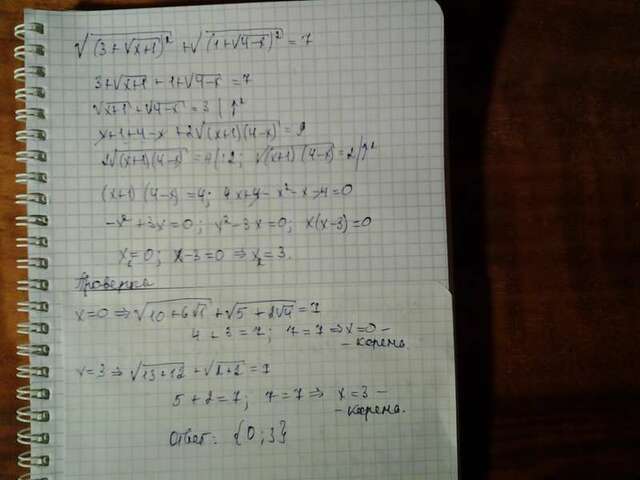 √(3+√x+1)² + √(1+√4-x)² = 7
3+√x+1 + 1+√4-x = 7
√x+1 + √4-x = 3 | ²
x+1+4-x + 2√(x+1)(4-x) = 9
2√(x+1)(4-x) = 4 | :2; √(x+1)(4-x) = 2 | ²
(x+1)(4-x) = 4; 4x+4-x²-x-4=0
-x²+3x=0; x²-3x=0; x(x-3)=0
x₁=0; x-3=0 ⇒ x₂=3.
Проверка
x=0 ⇒ √10+6√1 + √5+2√4 = 7
4+3=7; 7=7 ⇒ x=0 -
- корень.
x=3 ⇒ √13+12 + √2+2 = 7
5+2=7; 7=7 ⇒ x=3 -
- корень.
Ответ: {0;3}